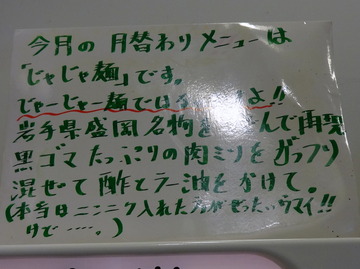 今月の月替わりメニューは
「じゃじゃ麺」です。
じゃーじゃー麺では よ!!
岩手県盛岡名物を んで再現
黒ゴマたっぷりの肉ミソをガッツリ
混ぜて酢とラー油をかけて。
(本当はニンニク入れた方がぜったいウマイ!!
けど‥‥。)